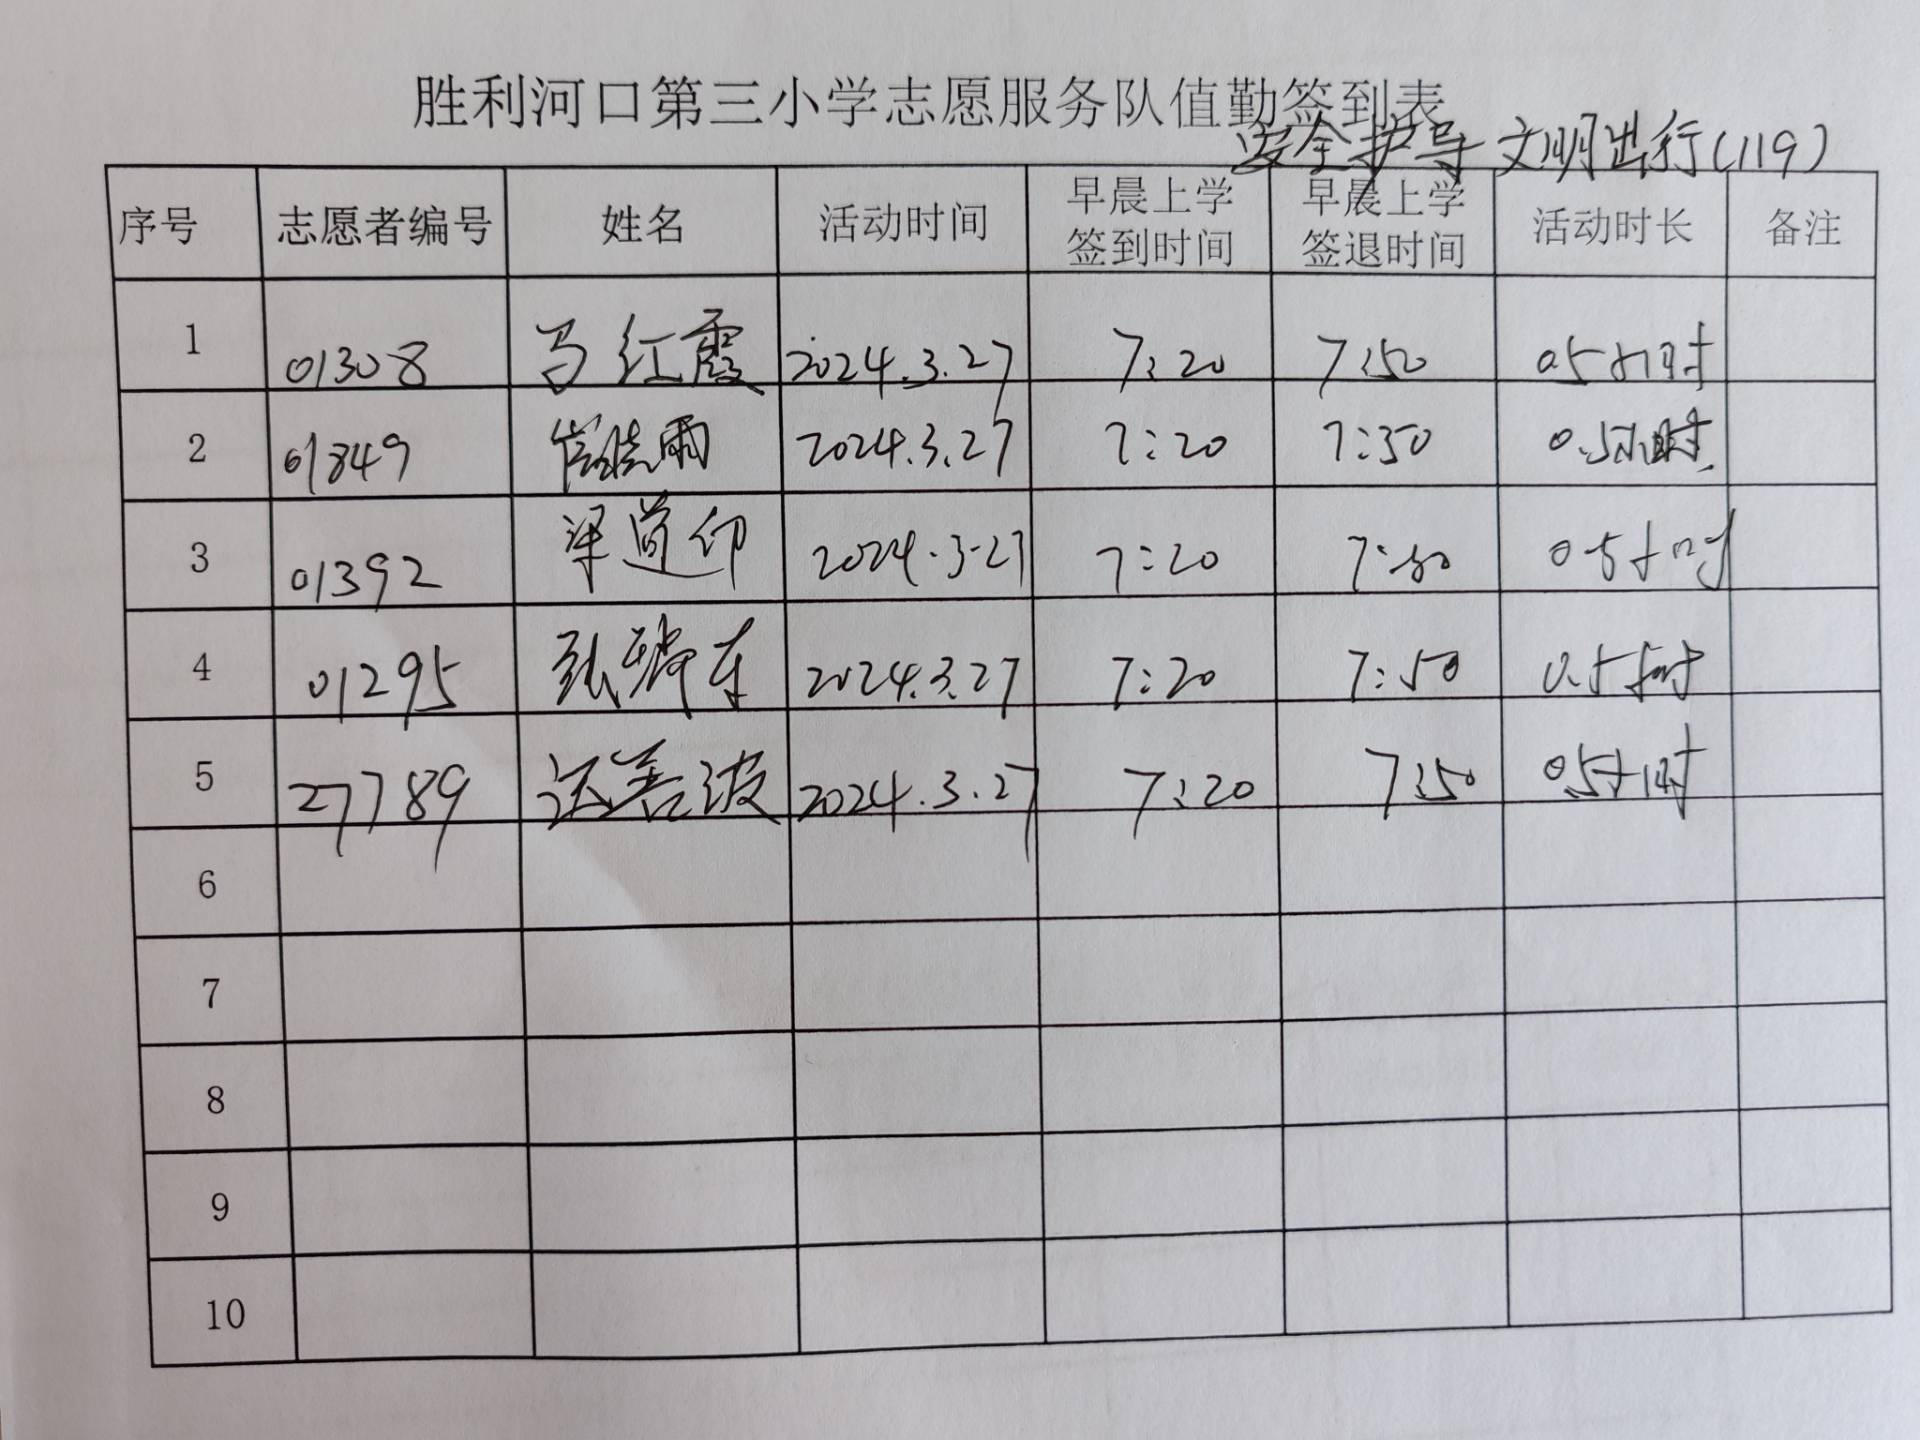 胜利河口第三小学志愿服务队值勤签到表
安全护导 文明出行(119)
序号 志愿者编号 姓名 活动时间 早晨上学签到时间 早晨上学签退时间 活动时长 备注
1 01308 马红霞 2024.3.27 7:20 7:50 0.5小时
2 01849 崔晓雨 2024.3.27 7:20 7:50 0.5小时
3 01392 梁道印 2024.3.27 7:20 7:50 0.5小时
4 01295 张 东 2024.3.27 7:20 7:50 0.5小时
5 27789 善波 2024.3.27 7:20 7:50 0.5小时
6
7
8
9
10